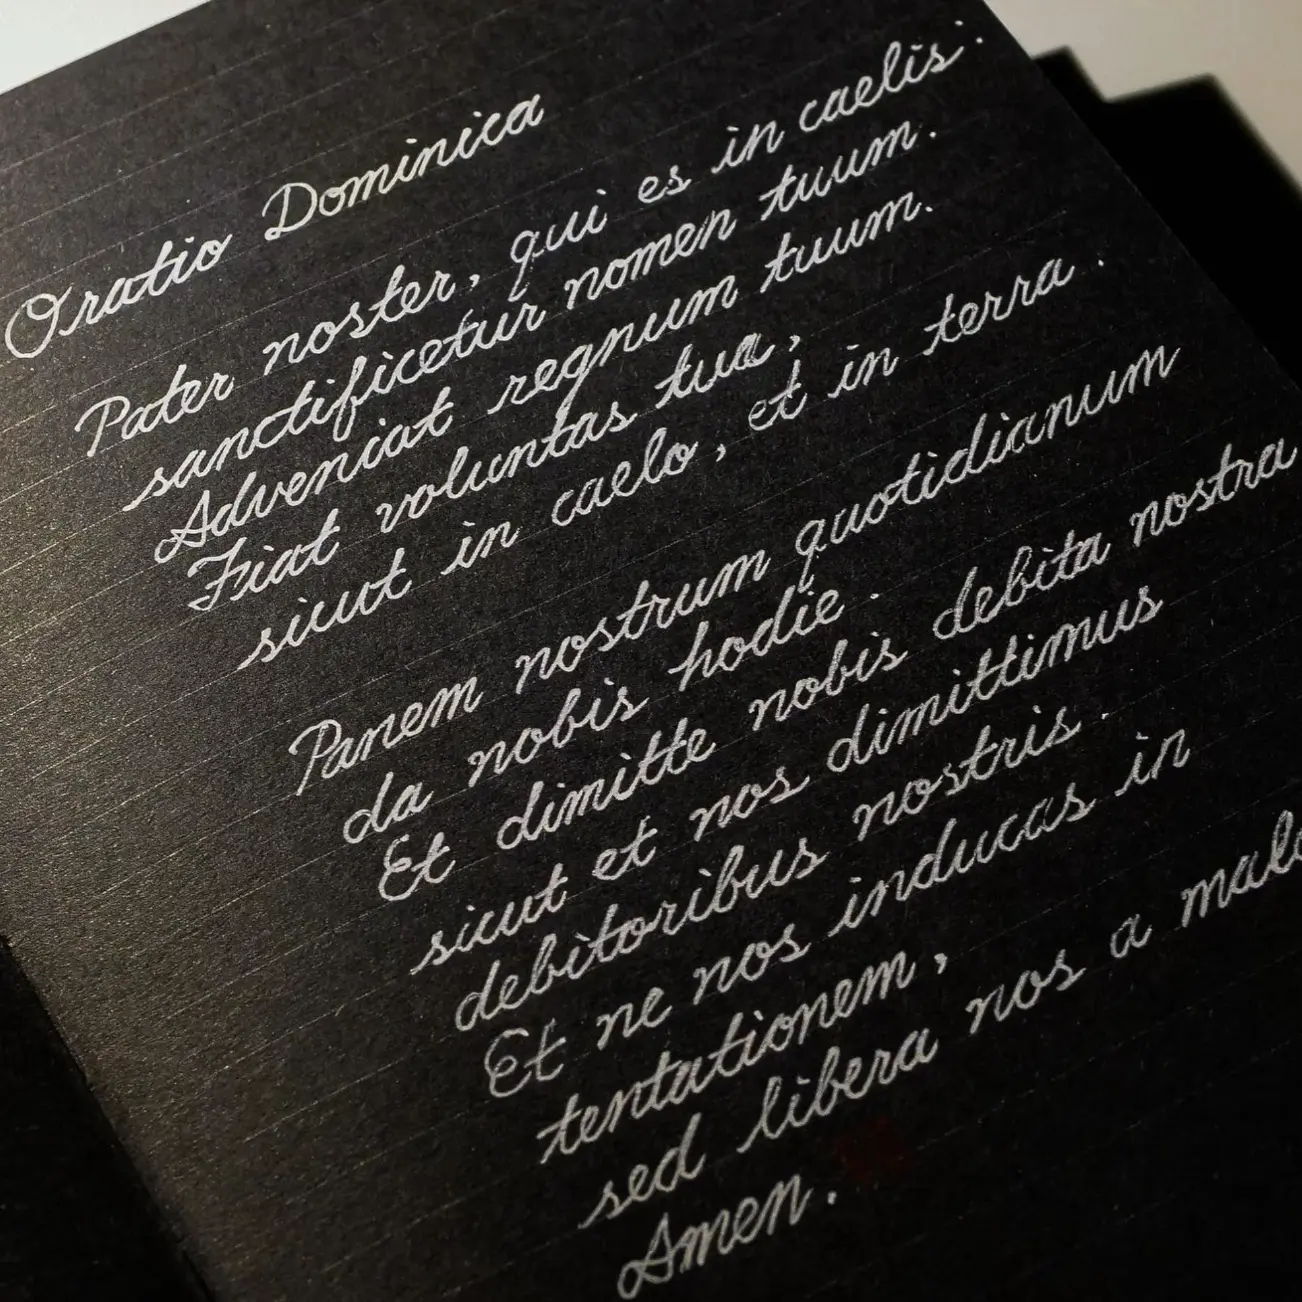 Oratio Dominica
Pater noster, qui es in caelis:
sanctificetur nomen tuum.
Adveniat regnum tuum.
Fiat voluntas tua,
sicut in caelo, et in terra.
Panem nostrum quotidianum
da nobis hodie.
Et dimitte nobis debita nostra
sicut et nos dimittimus
debitoribus nostris.
Et ne nos inducas in
tentationem,
sed libera nos a malo
Amen.